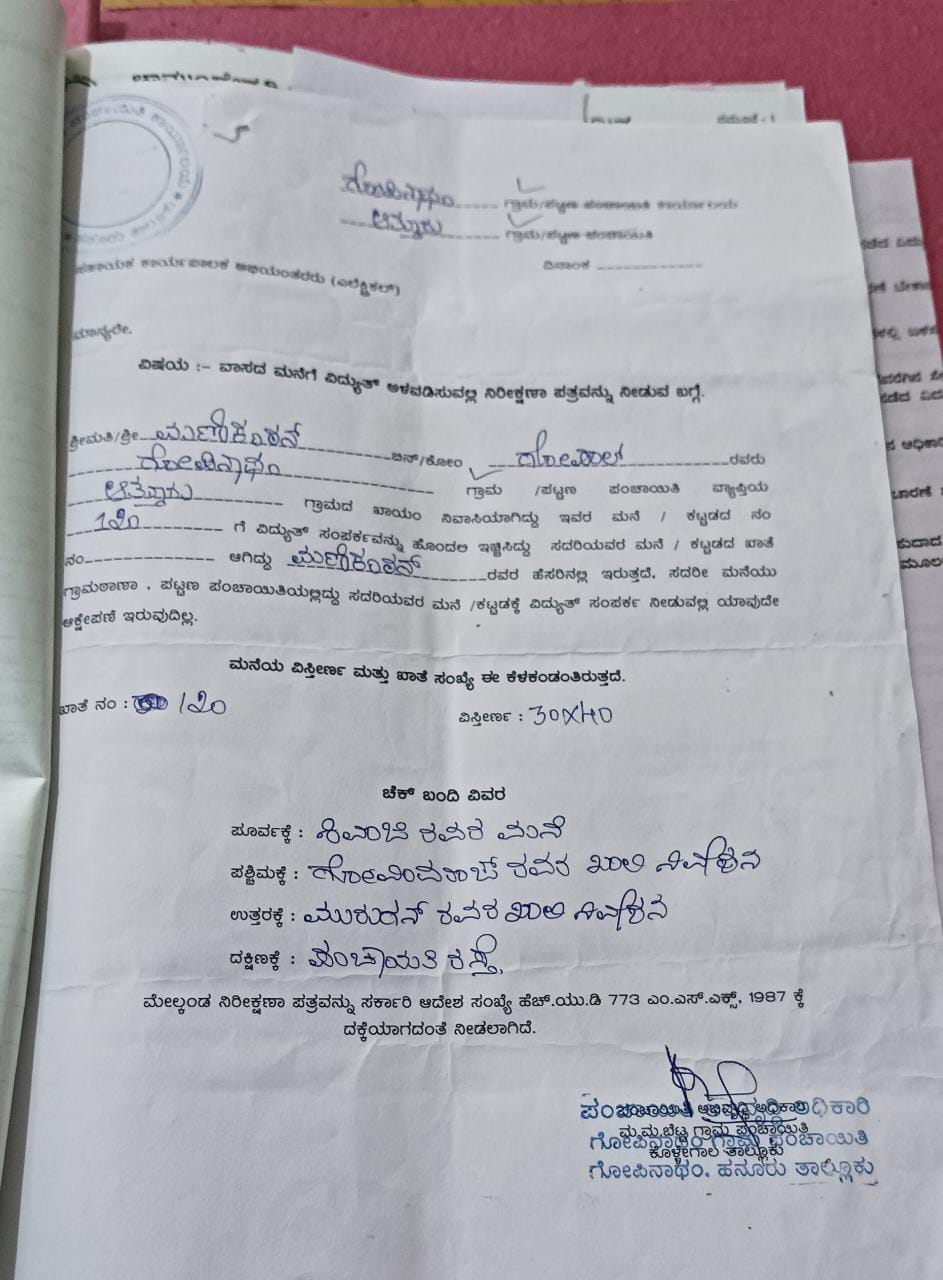 ನಮೂನೆ - 1
ಗೋಪಿನಾಥಂ ಗ್ರಾಮ/ಪಟ್ಟಣ ಪಂಚಾಯಿತಿ ಕಾರ್ಯಾಲಯ
ಗ್ರಾಮ/ಪಟ್ಟಣ ಪಂಚಾಯಿತಿ
ದಿನಾಂಕ
ಸಹಾಯಕ ಕಾರ್ಯಪಾಲಕ ಅಭಿಯಂತರರು (ಎಲೆಕ್ಟ್ರಿಕಲ್)
ಮಾನ್ಯರೇ.
ವಿಷಯ :- ವಾಸದ ಮನೆಗೆ ವಿದ್ಯುತ್ ಅಳವಡಿಸುವಲ್ಲಿ ನಿರೀಕ್ಷಣಾ ಪತ್ರವನ್ನು ನೀಡುವ ಬಗ್ಗೆ.
ಶ್ರೀಮತಿ/ಶ್ರೀ ಮಣಿಕಂಠನ್ ಬಿನ್/ಕೋಂ ಗೋಪಾಲ್ ರವರು
ಗೋಪಿನಾಥಂ ಗ್ರಾಮ /ಪಟ್ಟಣ ಪಂಚಾಯಿತಿ ವ್ಯಾಪ್ತಿಯ
ಗ್ರಾಮದ ಖಾಯಂ ನಿವಾಸಿಯಾಗಿದ್ದು ಇವರ ಮನೆ / ಕಟ್ಟಡದ ನಂ
120 ಗೆ ವಿದ್ಯುತ್ ಸಂಪರ್ಕವನ್ನು ಹೊಂದಲು ಇಚ್ಚಿಸಿದ್ದು ಸದರಿಯವರ ಮನೆ / ಕಟ್ಟಡದ ಖಾತೆ
ನಂ ಆಗಿದ್ದು ಮಣಿಕಂಠನ್ ರವರ ಹೆಸರಿನಲ್ಲಿ ಇರುತ್ತದೆ. ಸದರೀ ಮನೆಯು
ಗ್ರಾಮಠಾಣಾ . ಪಟ್ಟಣ ಪಂಚಾಯಿತಿಯಲ್ಲಿದ್ದು ಸದರಿಯವರ ಮನೆ /ಕಟ್ಟಡಕ್ಕೆ ವಿದ್ಯುತ್ ಸಂಪರ್ಕ ನೀಡುವಲ್ಲಿ ಯಾವುದೇ
ಆಕ್ಷೇಪಣೆ ಇರುವುದಿಲ್ಲ.
ಮನೆಯ ವಿಸ್ತೀರ್ಣ ಮತ್ತು ಖಾತೆ ಸಂಖ್ಯೆ ಈ ಕೆಳಕಂಡಂತಿರುತ್ತದೆ.
ಖಾತೆ ನಂ : 120 ವಿಸ್ತೀರ್ಣ : 30X40
ಚೆಕ್ ಬಂದಿ ವಿವರ
ಪೂರ್ವಕ್ಕೆ : ರವರ ಮನೆ
ಪಶ್ಚಿಮಕ್ಕೆ : ಗೋವಿಂದರಾಜ್ ರವರ ಖಾಲಿ ನಿವೇಶನ
ಉತ್ತರಕ್ಕೆ : ಮುರುಗನ್ ರವರ ಖಾಲಿ ನಿವೇಶನ
ದಕ್ಷಿಣಕ್ಕೆ : ಪಂಚಾಯತಿ ರಸ್ತೆ.
ಮೇಲ್ಕಂಡ ನಿರೀಕ್ಷಣಾ ಪತ್ರವನ್ನು ಸರ್ಕಾರಿ ಆದೇಶ ಸಂಖ್ಯೆ ಹೆಚ್.ಯು.ಡಿ 773 ಎಂ.ಎಸ್.ಎಕ್ಸ್. 1987 ಕ್ಕೆ
ದಕ್ಕೆಯಾಗದಂತೆ ನೀಡಲಾಗಿದೆ.
ಪಂಚಾಯಿತಿ ಅಭಿವೃದ್ಧಿ ಅಧಿಕಾರಿ
ಮ.ಮ.ಬೆಟ್ಟ ಗ್ರಾಮ ಪಂಚಾಯಿತಿ
ಗೋಪಿನಾಥಂ ಗ್ರಾಮ ಪಂಚಾಯಿತಿ
ಕೊಳ್ಳೇಗಾಲ ತಾಲ್ಲೂಕು
ಗೋಪಿನಾಥಂ. ಹನೂರು ತಾಲ್ಲೂಕು